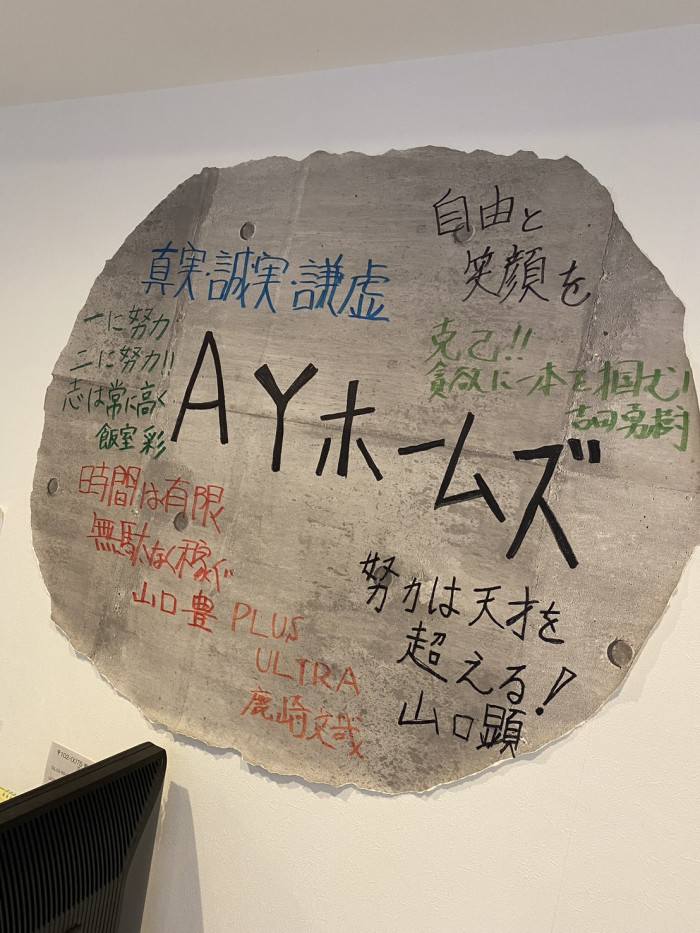 自由と
笑顔を
真実・誠実・謙虚
一に努力
二に努力!!
志は常に高く
飯室 彩
克己!!
貪欲に一本を掴む!!
吉田勇樹
AYホームズ
時間は有限
無駄なく稼ぐ
山口豊
PLUS
ULTRA
鹿崎文哉
努力は天才を
超える!
山口顕
〒102-0075